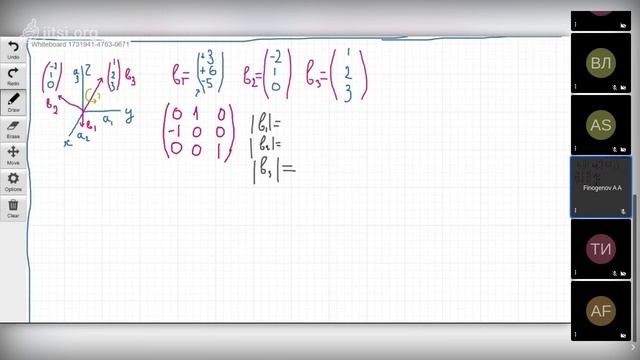 jitsi.org
Whiteboard 1731941-4763-0671
Redo
Draw
Erase
Move
Options
Clear
(-2 1 0) a3 Z (1 2 3) b3
b2 b1 a1 y
x a2
b1= (+3 +6 -5) b2= (-2 1 0) b3= (1 2 3)
(0 1 0
-1 0 0
0 0 1)
|b1|=
|b2|=
|b3|=
ВЛ
AS
Finogenov A A
ТИ
AF